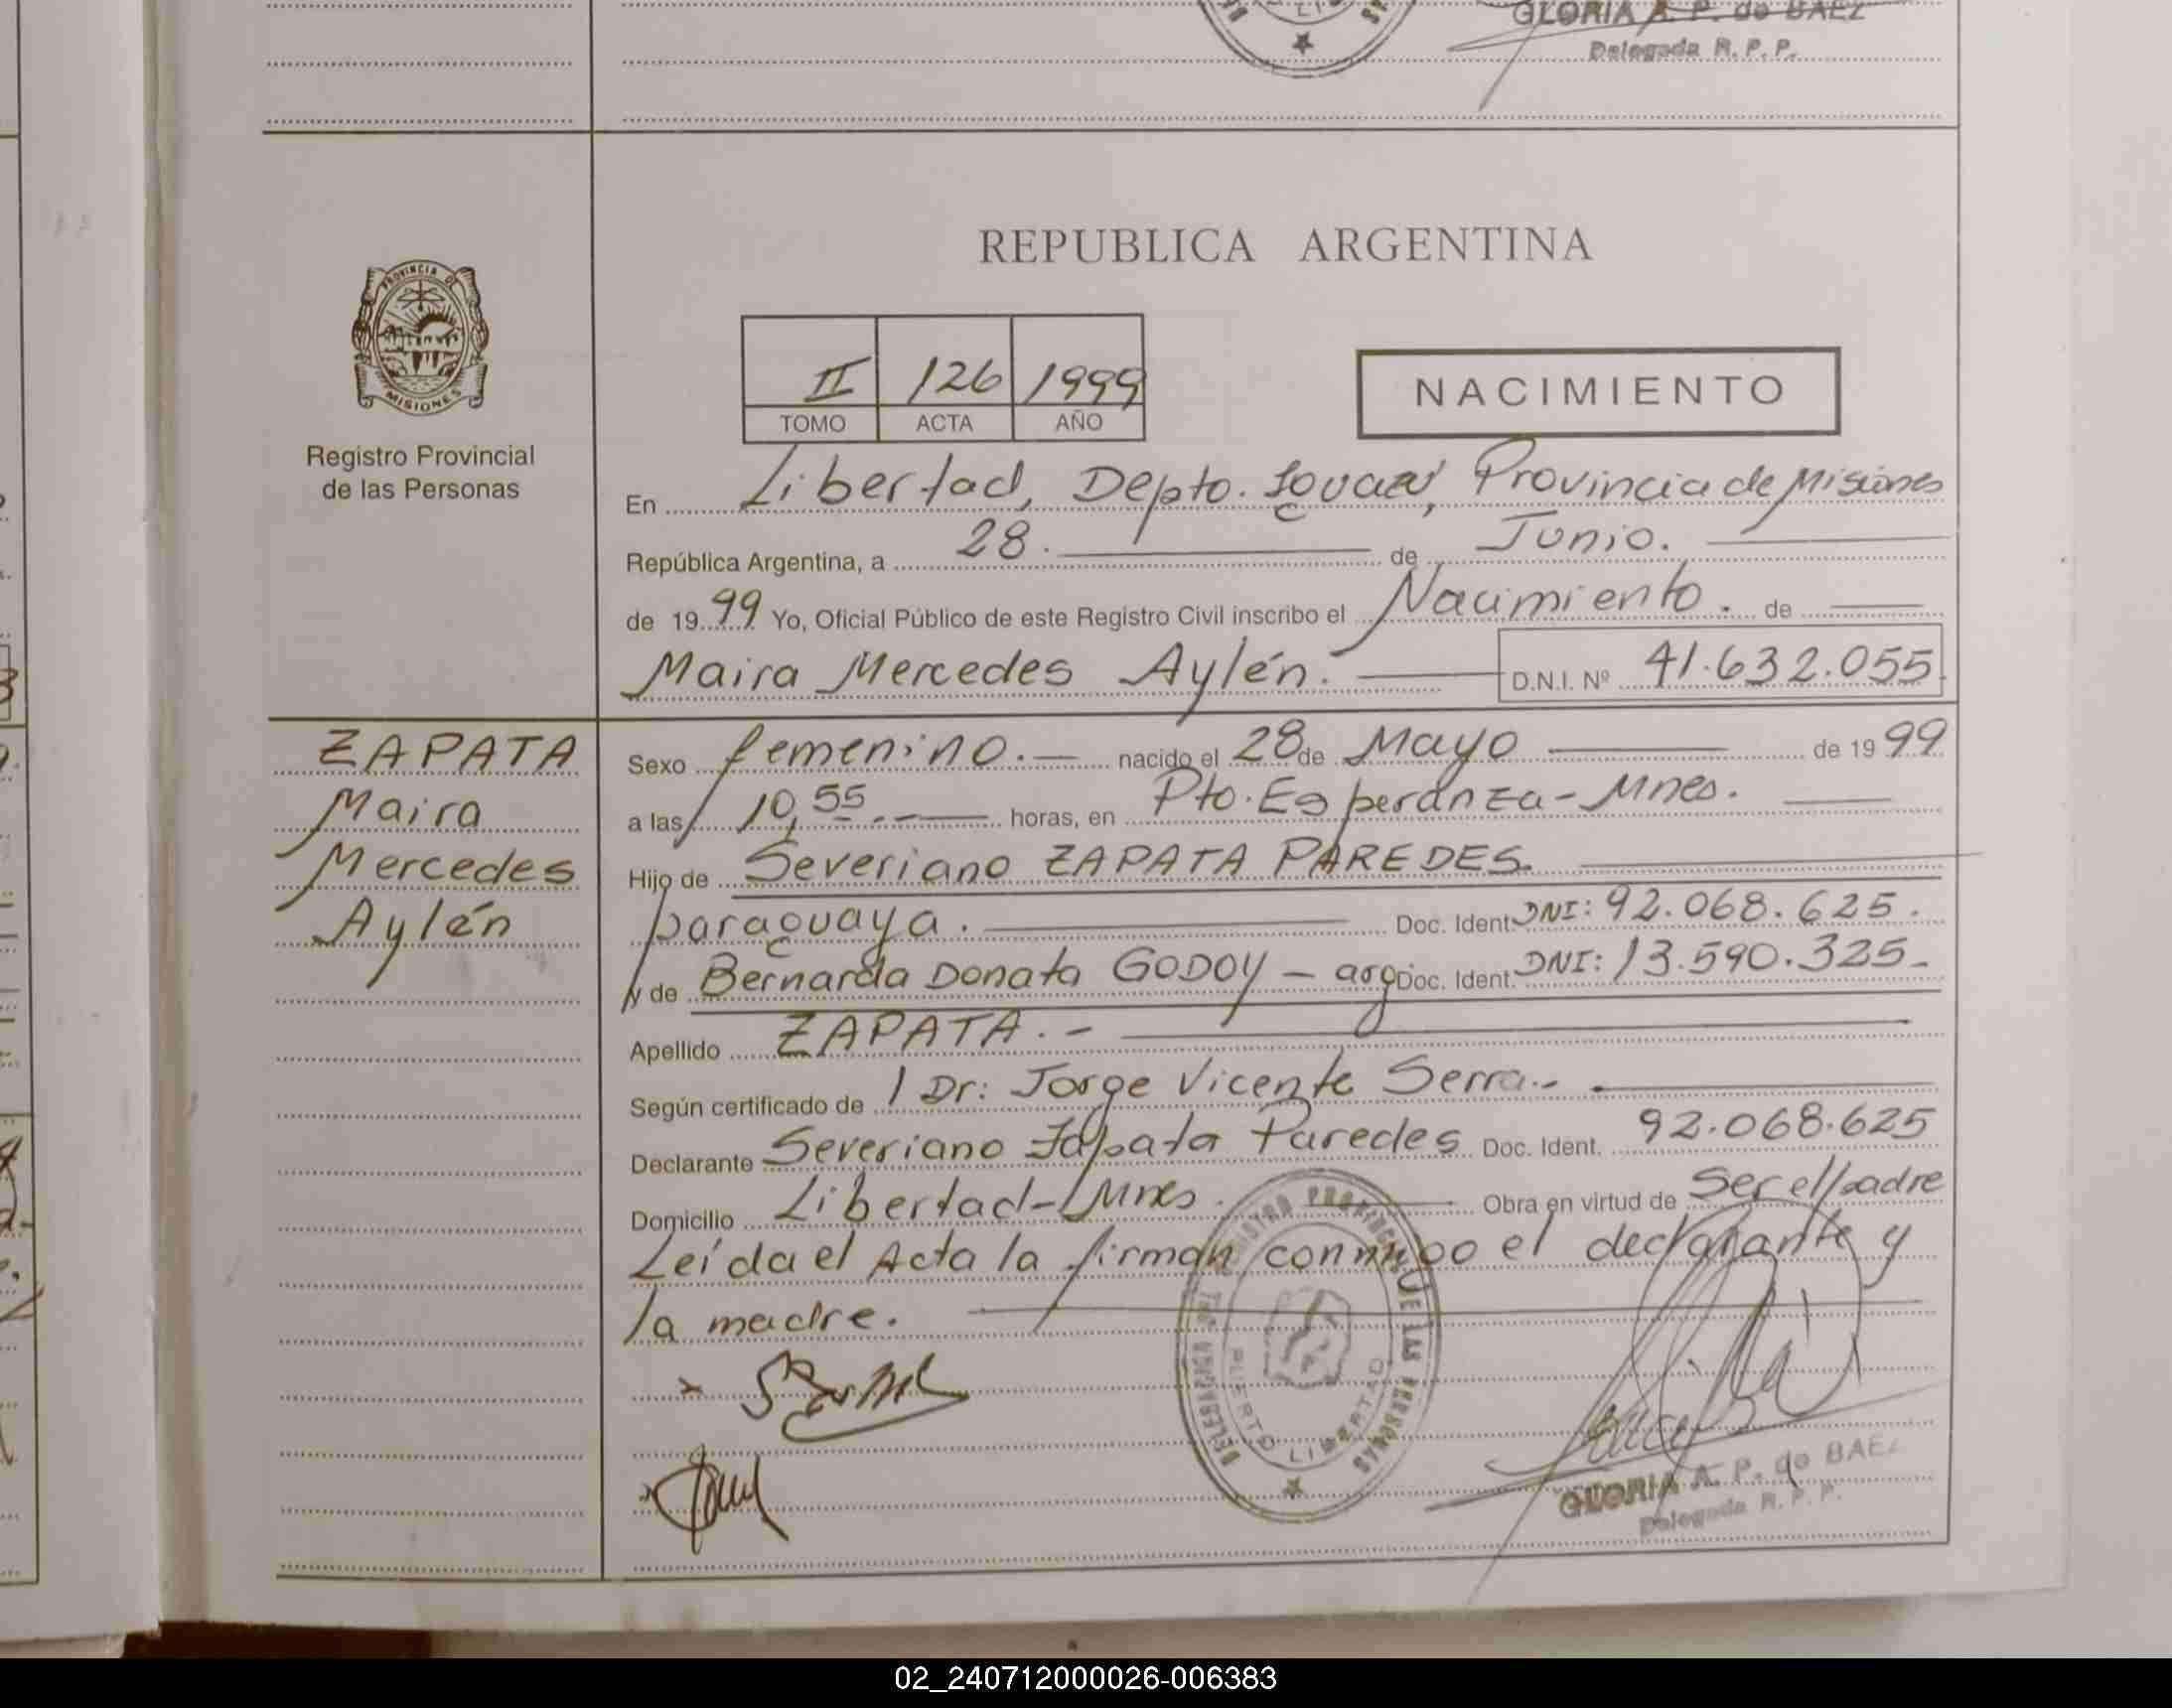 GLORIA A. P. de BAEZ
Delegada R. P. P.
PROVINCIA DE
MISIONES
Registro Provincial
de las Personas
REPUBLICA ARGENTINA
II 126 1999
TOMO ACTA AÑO
NACIMIENTO
En Libertad, Depto. Iguazú, Provincia de Misiones
República Argentina, a 28. de Junio.
de 1999 Yo, Oficial Público de este Registro Civil inscribo el Nacimiento. de
Maira Mercedes Aylén. D.N.I. Nº 41.632.055
ZAPATA
Maira
Mercedes
Aylén
Sexo femenino. nacido el 28 de Mayo de 1999
a las 10,55 horas, en Pto. Esperanza - Mnes.
Hijo de Severiano ZAPATA PAREDES.
paraguaya. Doc. Ident. DNI: 92.068.625.
y de Bernarda Donata GODOY - arg Doc. Ident. DNI: 13.590.325-
Apellido ZAPATA.-
Según certificado de / Dr: Jorge Vicente Serra.-
Declarante Severiano Zapata Paredes Doc. Ident. 92.068.625
Domicilio Libertad-Mnes. Obra en virtud de Ser el padre
Leída el Acta la firman conmigo el declarante y
la madre.
REGISTRO PROVINCIAL DE LAS PERSONAS
PUERTO LIBERTAD
GLORIA A. P. de BAEZ
Delegada R. P. P.
02_240712000026-006383